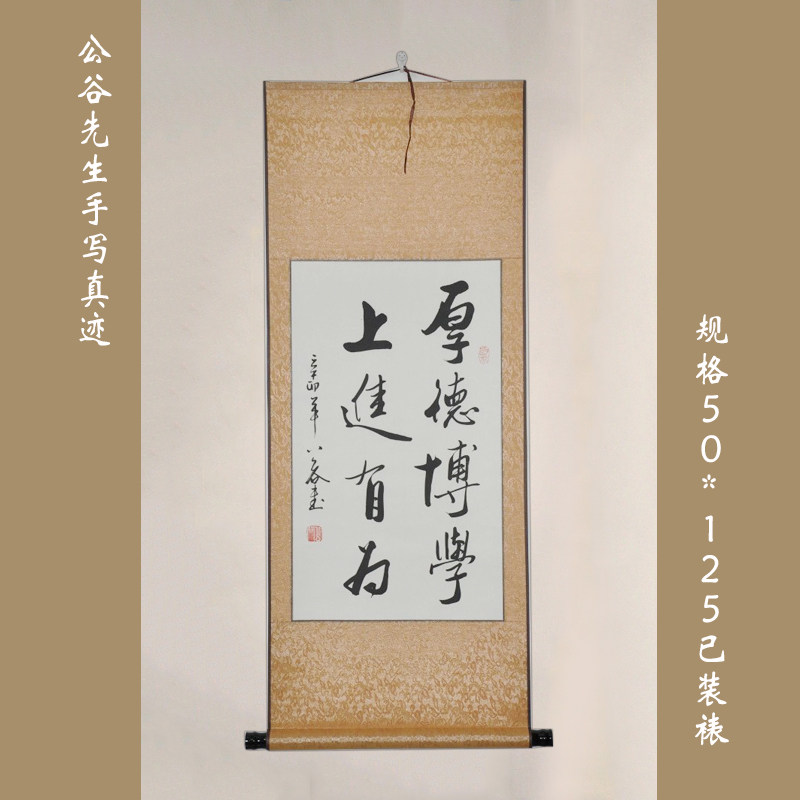 公谷先生手写真迹
厚德博學
上進有为
辛卯年公谷书
规格50*125已装裱